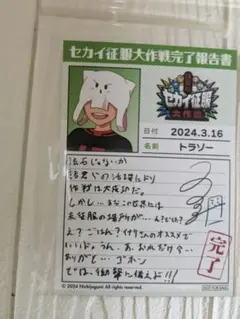 セカイ征服大作戦完了報告書
セカイ征服
大作戦
日付 2024.3.16
名前 トラゾー
流石じゃないか
諸君らの活躍により
作戦は大成功だ。
しかし…まだこの世界には
未征服の場所が…
え?ごはん?
オススメで
いいよ。うん。あ、おれだけ今…
ありがと…ゴホン
では、働撃に備えよ!!!
完了